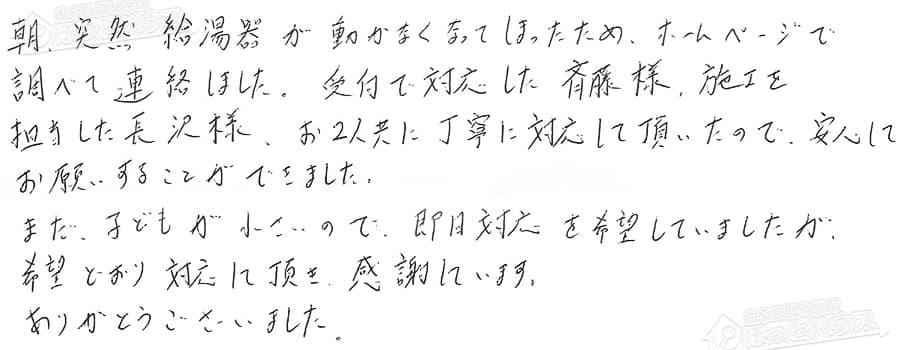 朝、突然 給湯器が動かなくなってしまったため、ホームページで
調べて連絡しました。受付で対応した斉藤様、施工を
担当した長沢様、お2人共に丁寧に対応して頂いたので、安心して
お願いすることができました。
まだ、子どもが小さいので、即日対応を希望していましたが、
希望どおり対応して頂き、感謝しています。
ありがとうございました。